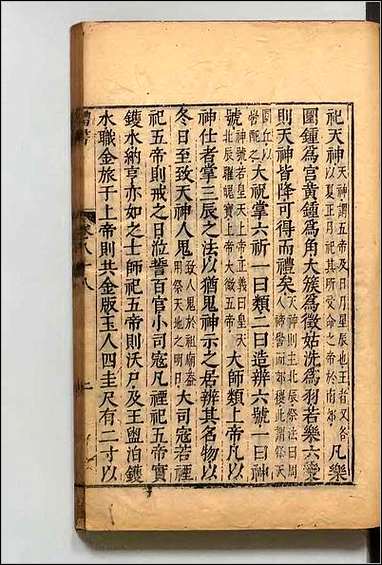 祀天神天神謂五帝及日月星辰也王者又各以夏正月祀其所受命之帝於南郊凡樂
圜鍾爲宮黃鍾爲角大簇爲徵姑洗爲羽若樂六變
則天神皆降可得而禮矣天神則主北辰祭法曰周人禘嚳而郊稷謂此祭天
圜丘以嚳配之大祝掌六祈一曰類二曰造辨六號一曰神
號神號若皇天上帝正義曰皇天北辰耀魄寶上帝大微五帝大師類上帝凡以
神仕者掌三辰之法以猶鬼神示之居辨其名物以
冬日至致天神人鬼致人鬼於祖廟蓋用祭天之明日大司寇若禋
祀五帝則戒之日涖誓百官小司寇凡禋祀五帝實
鑊水納亨亦如之士師祀五帝則沃尸及王盥洎鑊
水職金旅于上帝則共金版玉人四圭尺有二寸以
禮書
卷八十八
二